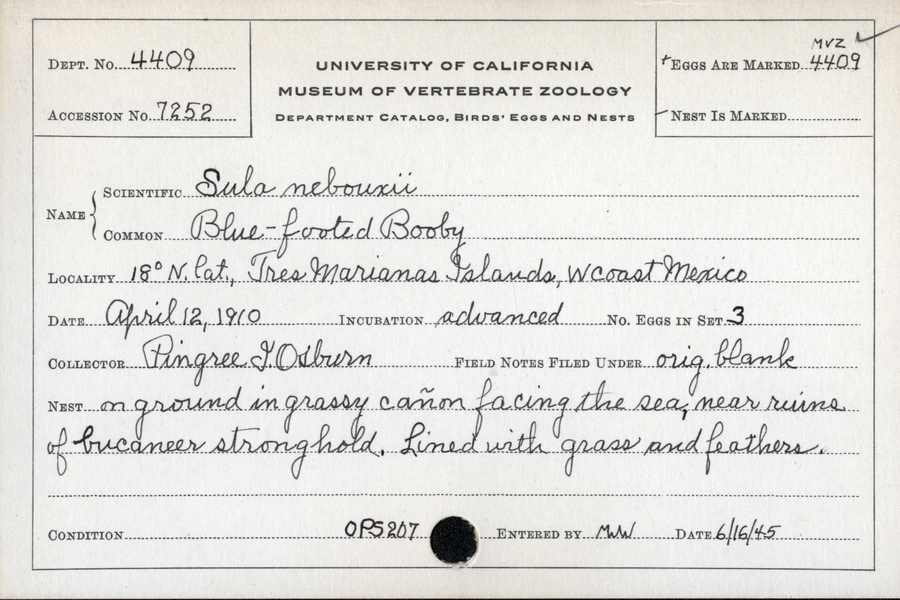 DEPT. No. 4409
ACCESSION No. 7252
UNIVERSITY OF CALIFORNIA
MUSEUM OF VERTEBRATE ZOOLOGY
DEPARTMENT CATALOG, BIRDS' EGGS AND NESTS
MVZ
EGGS ARE MARKED 4409
NEST IS MARKED
NAME
SCIENTIFIC Sula nebouxii
COMMON Blue-footed Booby
LOCALITY 18° N. lat., Tres Marianas Islands, W coast Mexico
DATE April 12, 1910 INCUBATION advanced No. EGGS IN SET 3
COLLECTOR Pingree I Osburn FIELD NOTES FILED UNDER orig. blank
NEST on ground in grassy cañon facing the sea, near ruins
of bucaneer stronghold. Lined with grass and feathers.
CONDITION OPS207 ENTERED BY MWW DATE 6/16/45